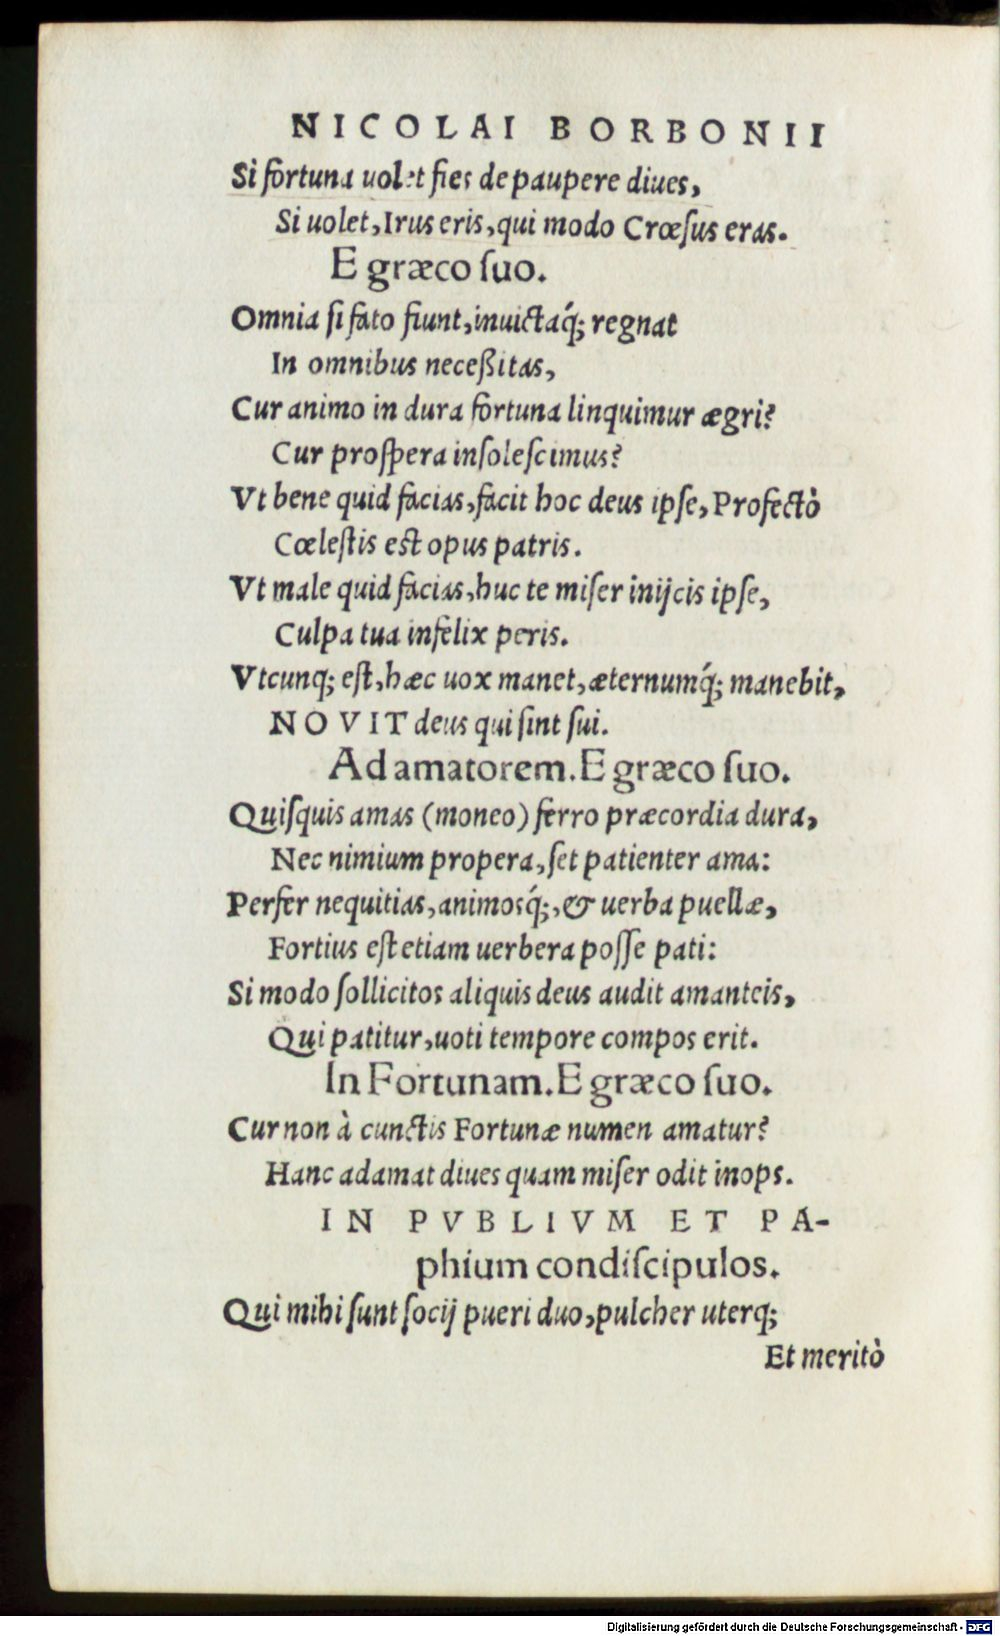 NICOLAI BORBONII
Si fortuna uolet fies de paupere diues,
Si uolet, Irus eris, qui modo Crœſus eras.
E græco ſuo.
Omnia ſi fato fiunt, inuictaq́; regnat
In omnibus neceßitas,
Cur animo in dura fortuna linquimur ægri?
Cur proſpera inſoleſcimus?
Vt bene quid facias, facit hoc deus ipſe, Profectò
Cœleſtis est opus patris.
Vt male quid facias, huc te miſer inijcis ipſe,
Culpa tua infelix peris.
Vtcunq; eſt, hæc uox manet, æternumq́; manebit,
NOVIT deus qui ſint ſui.
Ad amatorem. E græco ſuo.
Quiſquis amas (moneo) ferro præcordia dura,
Nec nimium propera, ſet patienter ama:
Perfer nequitias, animosq́;, & uerba puellæ,
Fortius eſt etiam uerbera poſſe pati:
Si modo ſollicitos aliquis deus audit amanteis,
Qui patitur, uoti tempore compos erit.
In Fortunam. E græco ſuo.
Cur non à cunctis Fortunæ numen amatur?
Hanc adamat diues quam miſer odit inops.
IN PVBLIVM ET PA-
phium condiſcipulos.
Qui mihi ſunt ſocij pueri duo, pulcher uterq;
Et meritò
Digitalisierung gefördert durch die Deutsche Forschungsgemeinschaft - DFG